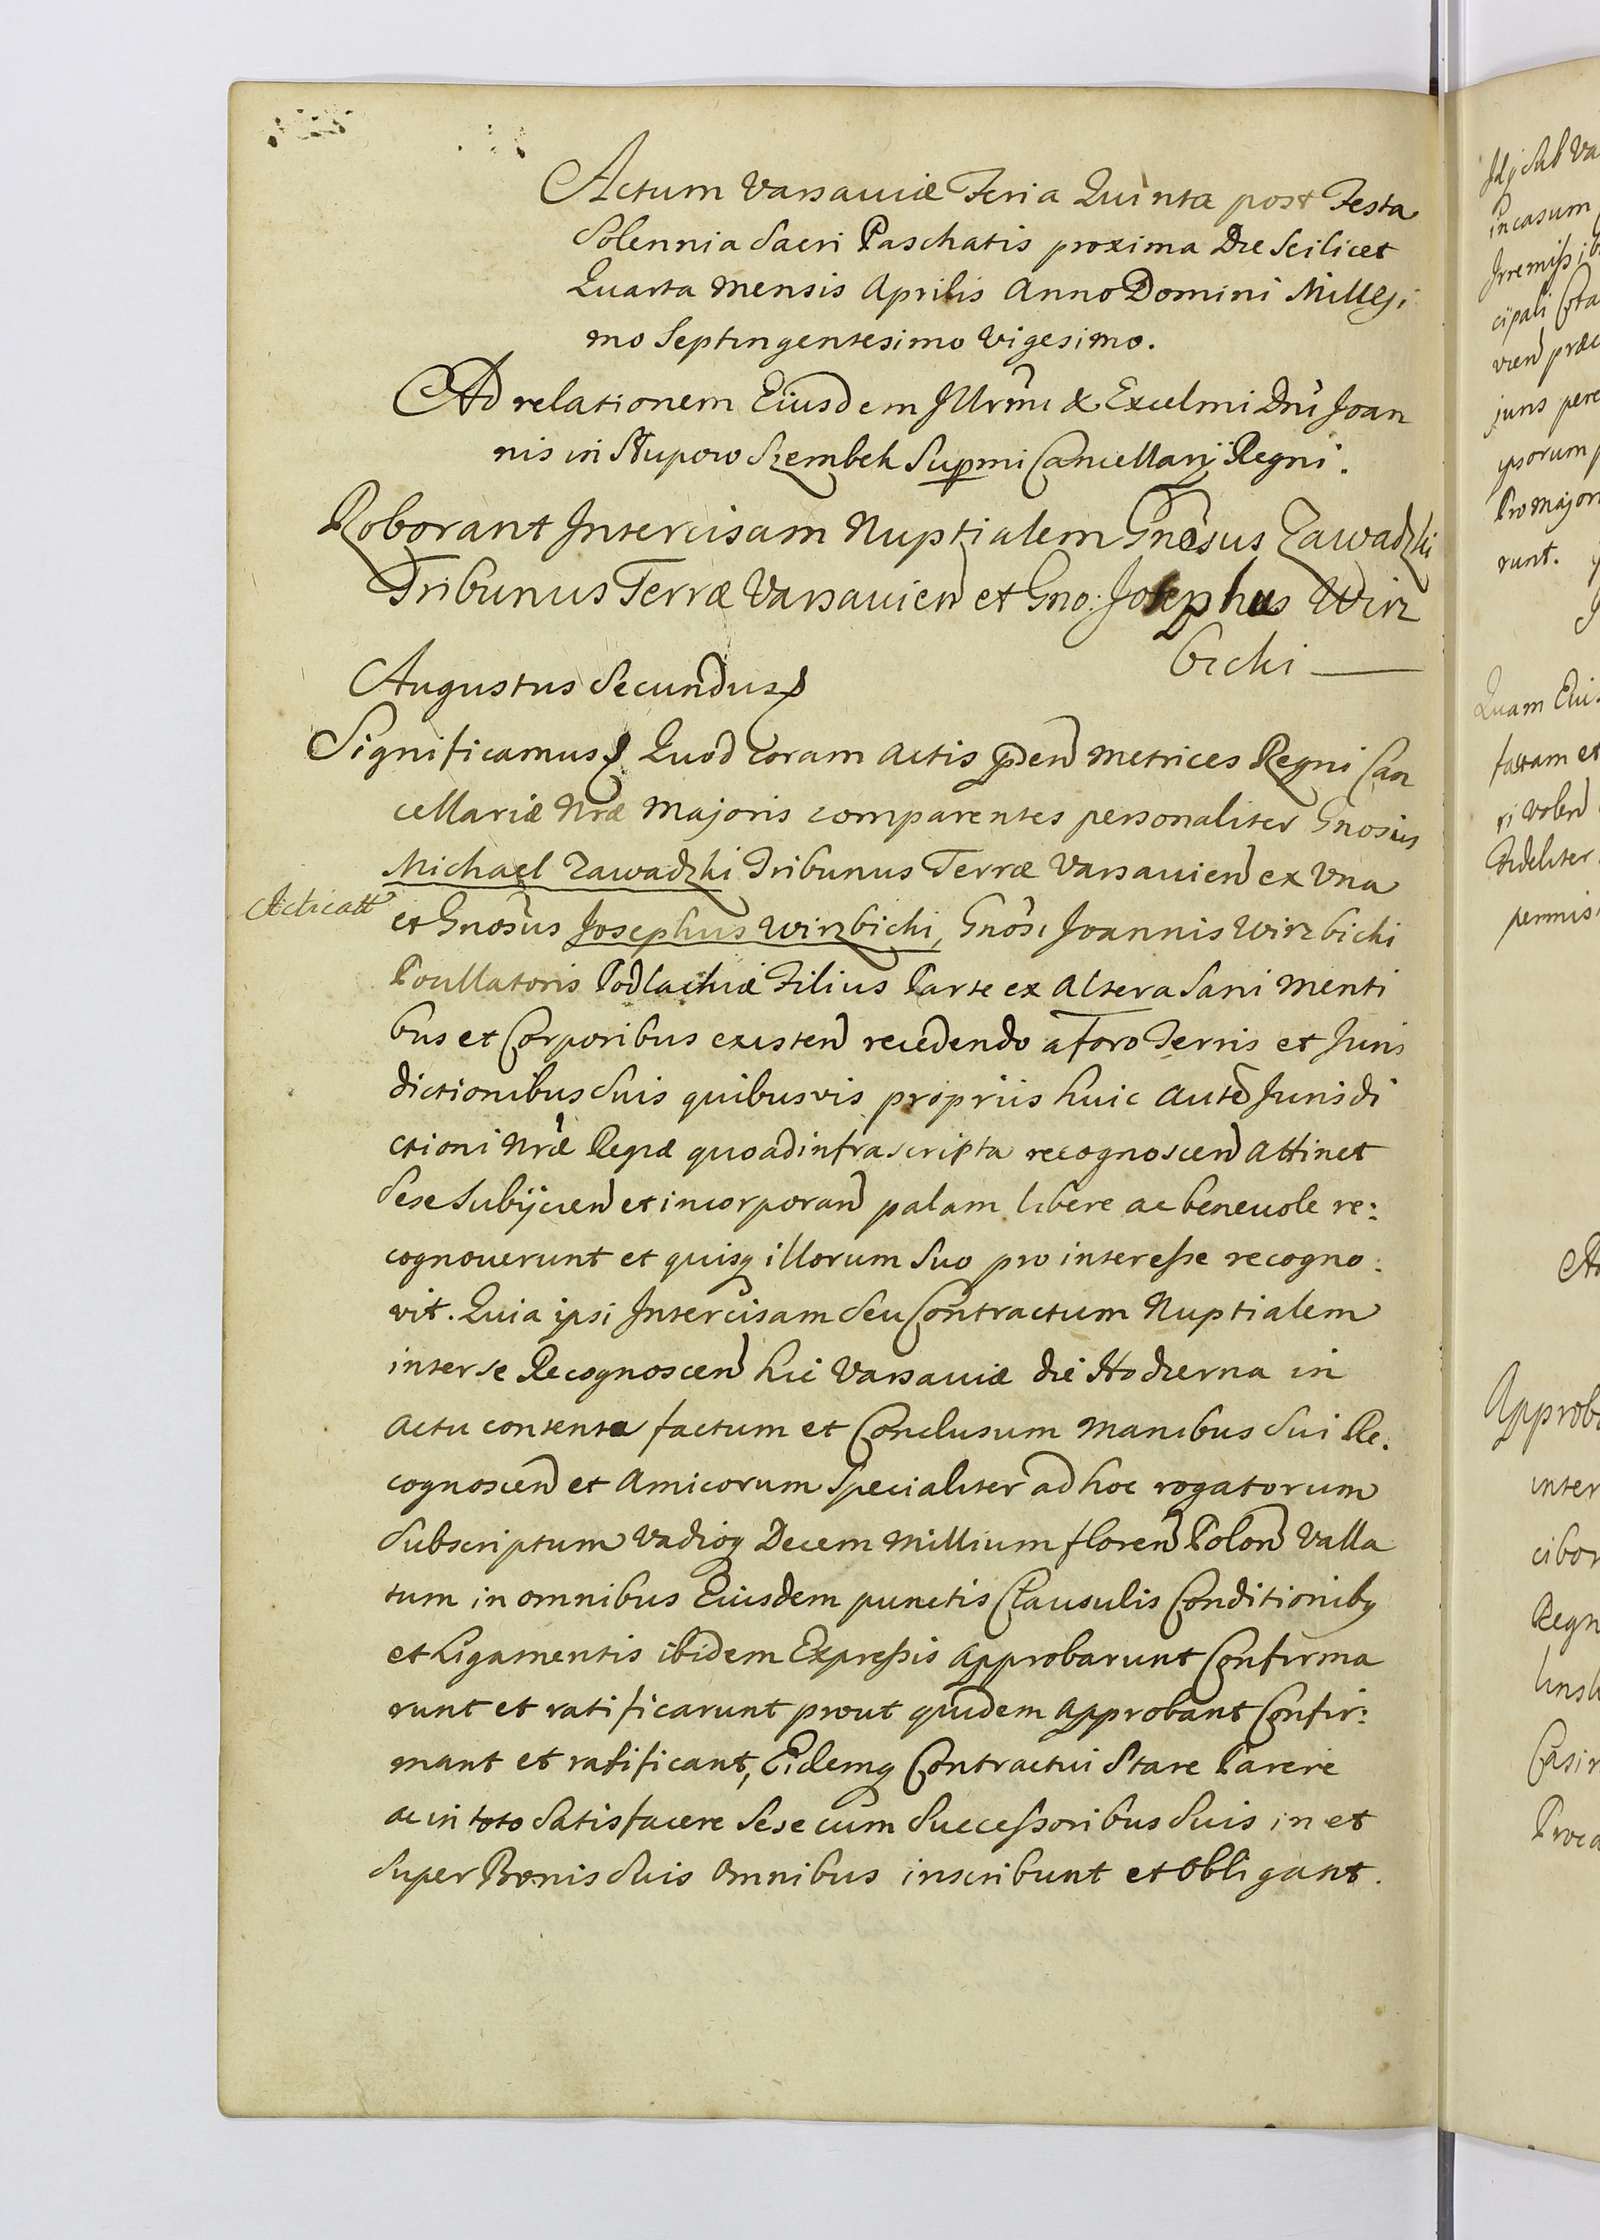 Actum Varsaviæ Feria Quinta post Festa
Solennia Sacri Paschatis proxima Die Scilicet
Quarta Mensis Aprilis Anno Domini Millesi
mo Septingentesimo Vigesimo.
Ad relationem Eiusdem Illrmi & Excelmi Dni Joan
nis in Słupow Szembek Supmi Cancellarij Regni.
Roborant Intercisam Nuptialem Gnosus Zawadzki
Tribunus Terræ Varsavien et Gno: Josephus Wirz
bicki
Augustus Secundus
Significamus Quod coram Actis pden Metrices Regni Can
cellariæ Nræ Majoris comparentes personaliter Gnosus
Michael Zawadzki Tribunus Terræ Varsavien ex Una
Acticatt
et Gnosus Josephus Wirzbicki, Gnosi Joannis Wirzbicki
Pocillatoris Podlachiæ Filius Parte ex Altera Sani Menti
bus et Corporibus existen recedendo a Foro Terris et Juris
dictionibus Suis quibusvis propriis huic Aute Jurisdi
ctioni Nræ Regiæ quoad infrascripta recognoscen Attinet
Sese Subijcien et incorporan palam libere ac benevole re:
cognoverunt et quisq illorum Suo pro interesse recogno:
vit. Quia ipsi Intercisam Seu Contractum Nuptialem
inter se Recognoscen hic Varsaviæ die Hodierna in
Actu contenta factum et Conclusum Manibus Sui Re:
cognoscen et Amicorum Specialiter ad hoc rogatorum
Subscriptum Vadioq Decem Millium floren Polon Valla
tum in omnibus Eiusdem punctis Clausulis Conditionibq
et Ligamentis ibidem Expressis Approbarunt Confirma
runt et ratificarunt prout quidem Approbant Confir:
mant et ratificant, Eidemq Contractui Stare Parere
ac in toto Satisfacere Sese cum Successoribus Suis in et
Super Bonis Suis Omnibus inscribunt et Obligant.